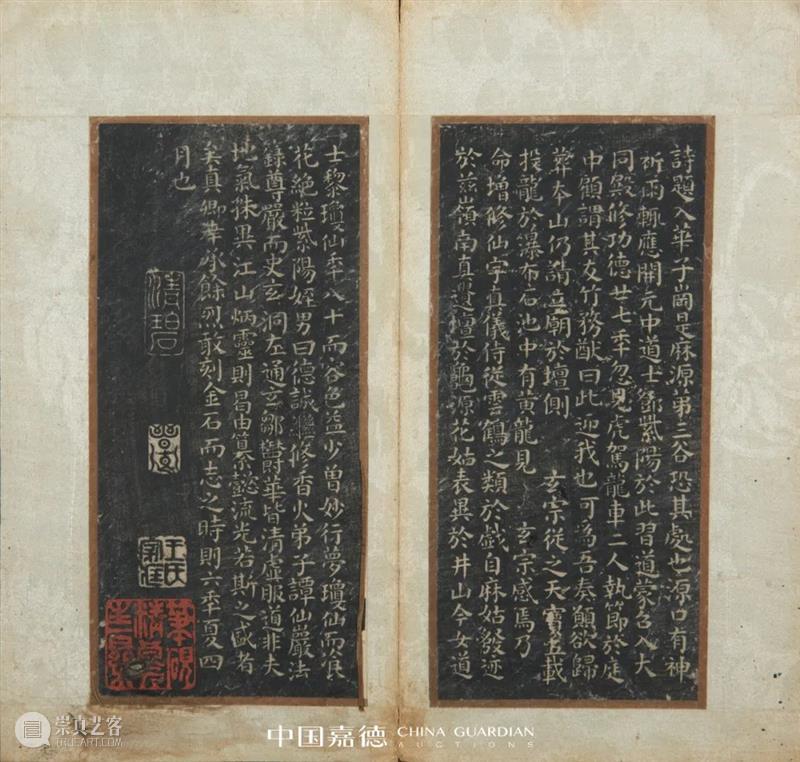 詩題入華子崗是麻源第三谷恐其處也源口有神
祈雨輒應開元中道士鄧紫陽於此習道蒙召入大
同殿修功德廿七秊忽見虎駕龍車二人執節於庭
中顧謂其友竹務猷曰此迎我也可為吾奏願欲歸
葬本山仍請立廟於壇側 玄宗從之天寶五載
投龍於瀑布石池中有黃龍見 玄宗感焉乃
命增修仙宇真儀侍從雲鶴之類於戲自麻姑發迹
於茲嶺南真遺壇於龜源花姑表異於井山今女道
士黎瓊仙秊八十而容色益少曾妙行夢瓊仙而飡
花絕粒紫陽姪男曰德誠繼修香火弟子譚仙巖法
籙尊嚴而史玄洞左通玄鄒鬱華皆清虛服道非夫
地氣殊異江山炳靈則曷由纂懿流光若斯之盛者
矣真卿幸承餘烈敢刻金石而志之時則六秊夏四
月也
清碧
崇真艺客
TRUEART.COM
中国嘉德 CHINA GUARDIAN
AUCTIONS